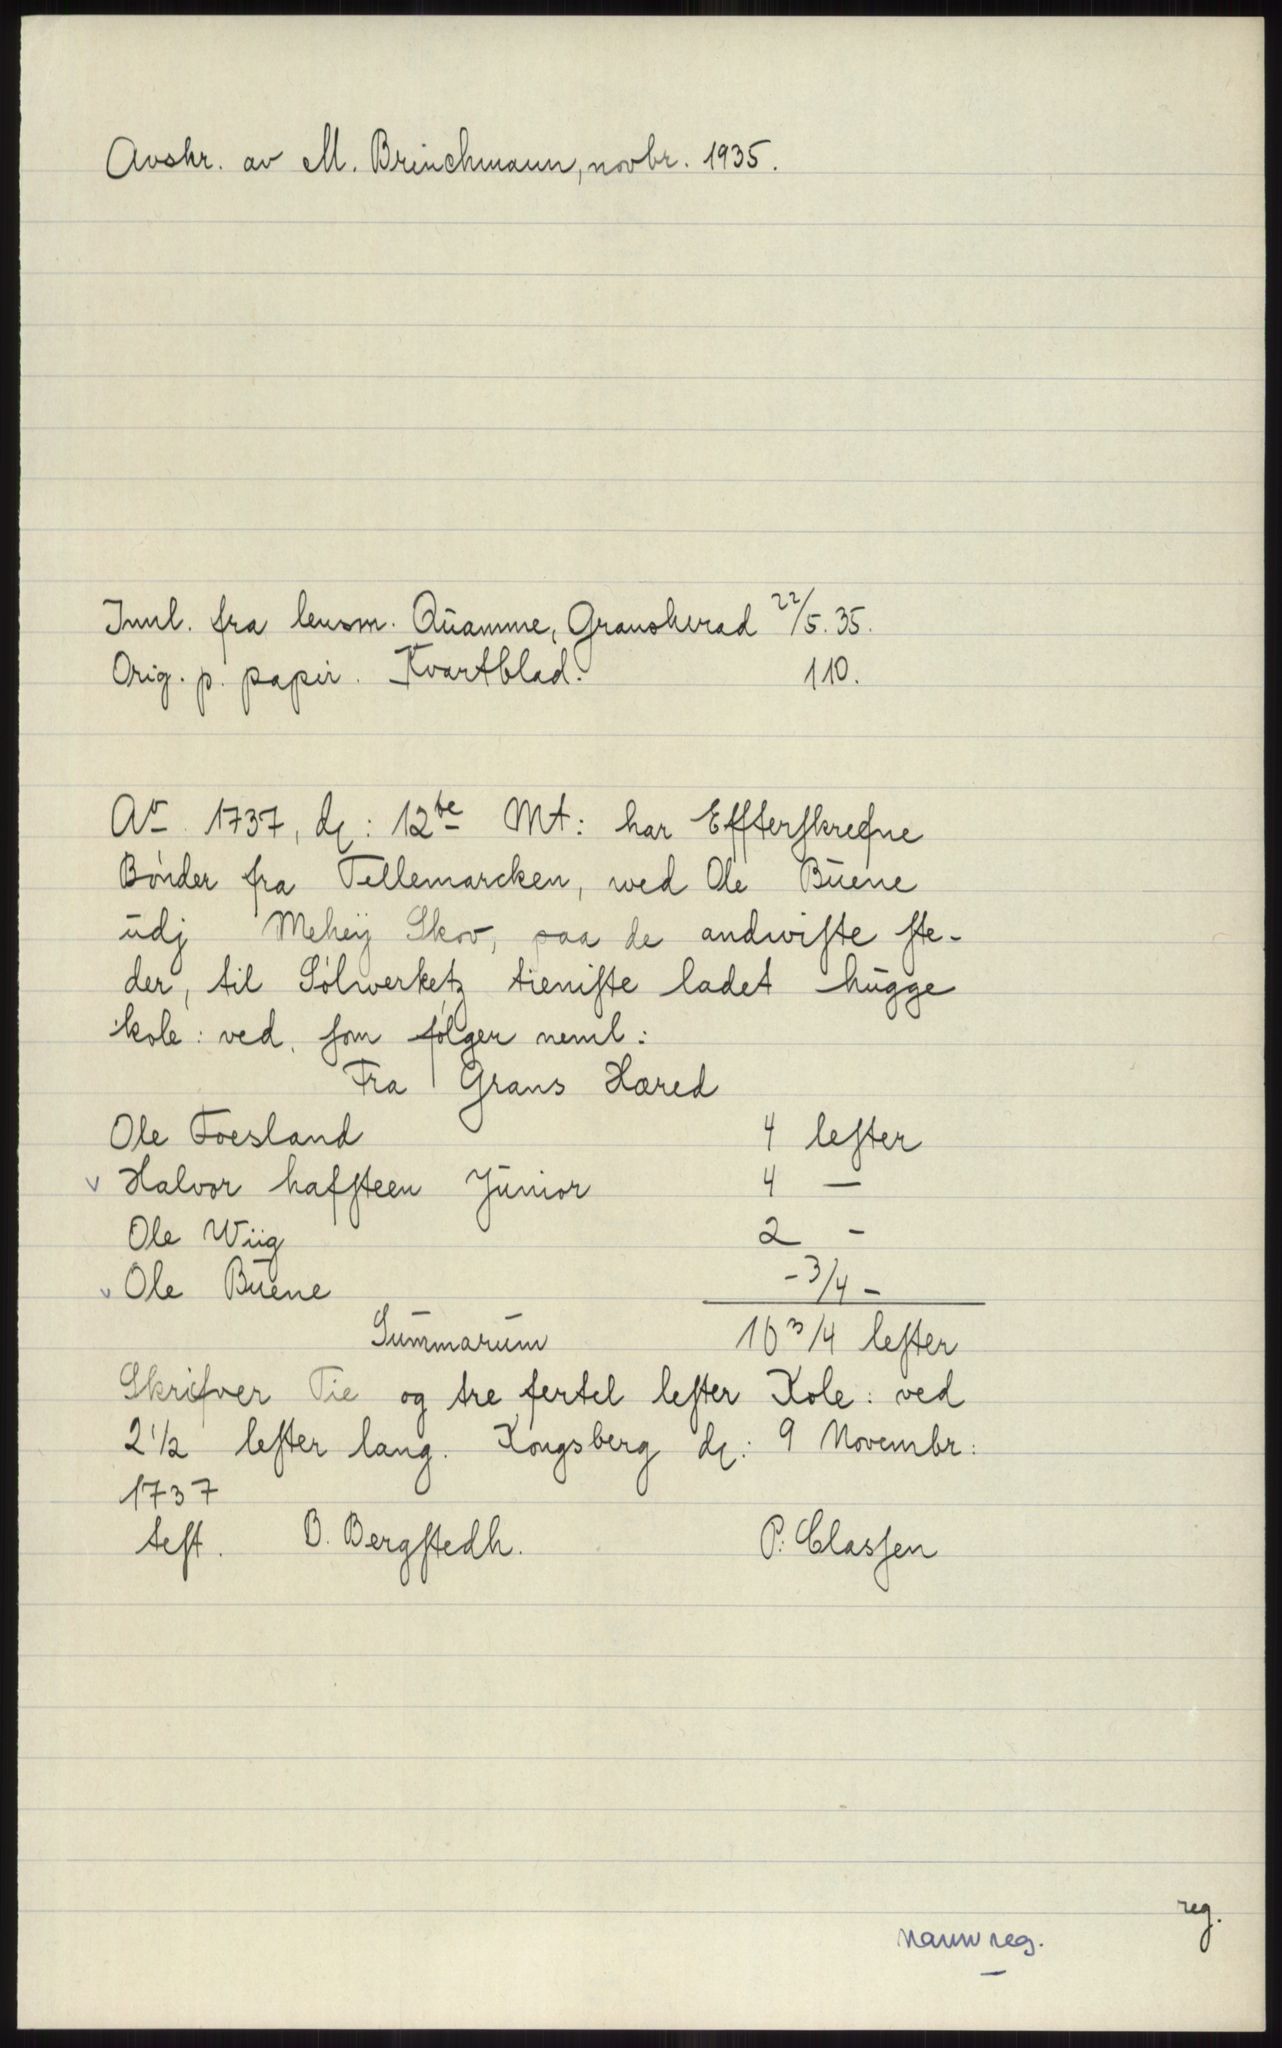 Avskr. av M. Brinchmann, novbr. 1935.
Innl. fra lensm. Qŭamme, Gransherad 22/5. 35.
Orig. p. papir. Kvartblad. 110.
Ao 1737, dȩ: 12te Mt: har Effterſkrefne
Bønder fra Tellemarcken, wed Ole Bŭene
ŭdj Meheÿ Skov, paa de andwiſte ſte-
der, til Sølwerketz tieniſte ladet hŭgge
kole: ved, ſom følger neml:
Fra Grans Hæred
Ole Foesland 4 leſter
v Halvor hafſteen Jŭnior 4 —
Ole Wiig 2 -
v Ole Bŭene - 3/4 -
Sŭmmarŭm 10 3/4 leſter
Skrifver Tie og tre fertel leſter Kole: ved
2 1/2 leſter lang. Kongsberg dȩ: 9 Novembr:
1737
teſt. B. Bergſtedh. P: Clasſen
reg.
navnreg.